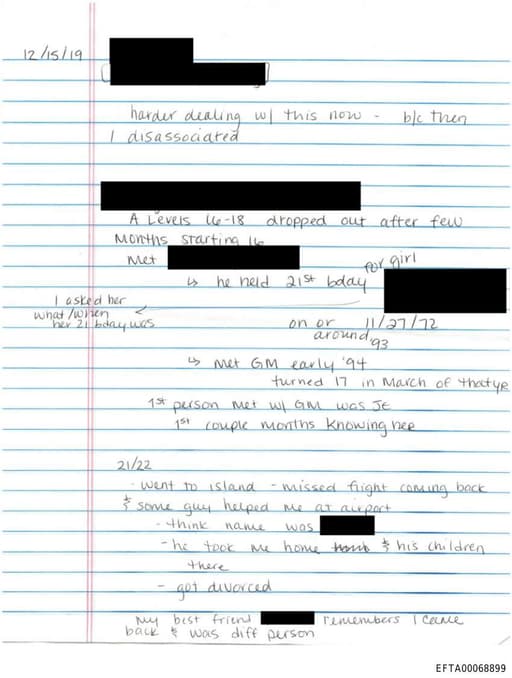 12/15/19
harder dealing w/ this now - b/c then
I disassociated
A Levels 16-18 dropped out after few
months starting 16
Met
for girl
↳ he held 21st bday
I asked her
what/when
her 21 bday was
on or 11/27/72
around '93
↳ met GM early '94
turned 17 in March of that yr
1st person met w/ GM was JE
1st couple months knowing her
21/22
- went to island - missed flight coming back
& some guy helped me at airport
- think name was
- he took me home & his children
there
- got divorced
my best friend remembers I came
back & was diff person
EFTA00068899